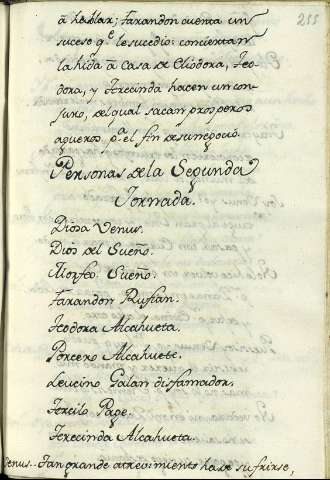 255
à hablar; Farandon cuenta un
suceso qᵉ le sucedio: conciertan
la hida à Casa de Eliodora, Teo-
dora, y Terecinda hacen un con-
juro, del qual sacan prosperos
agueros pᵃ el fin de su negocio.
Personas de la Segunda
Jornada.
Diosa Venus.
Dios del Sueño.
Morfeo Sueño.
Farandon Rufian.
Teodora Alcahueta.
Porcero Alcahuete.
Leucino Galan disfamador.
Tercilo Page.
Terecinda Alcahueta.
Venus.. Tan grande atrevimiento ha de sufrirse,